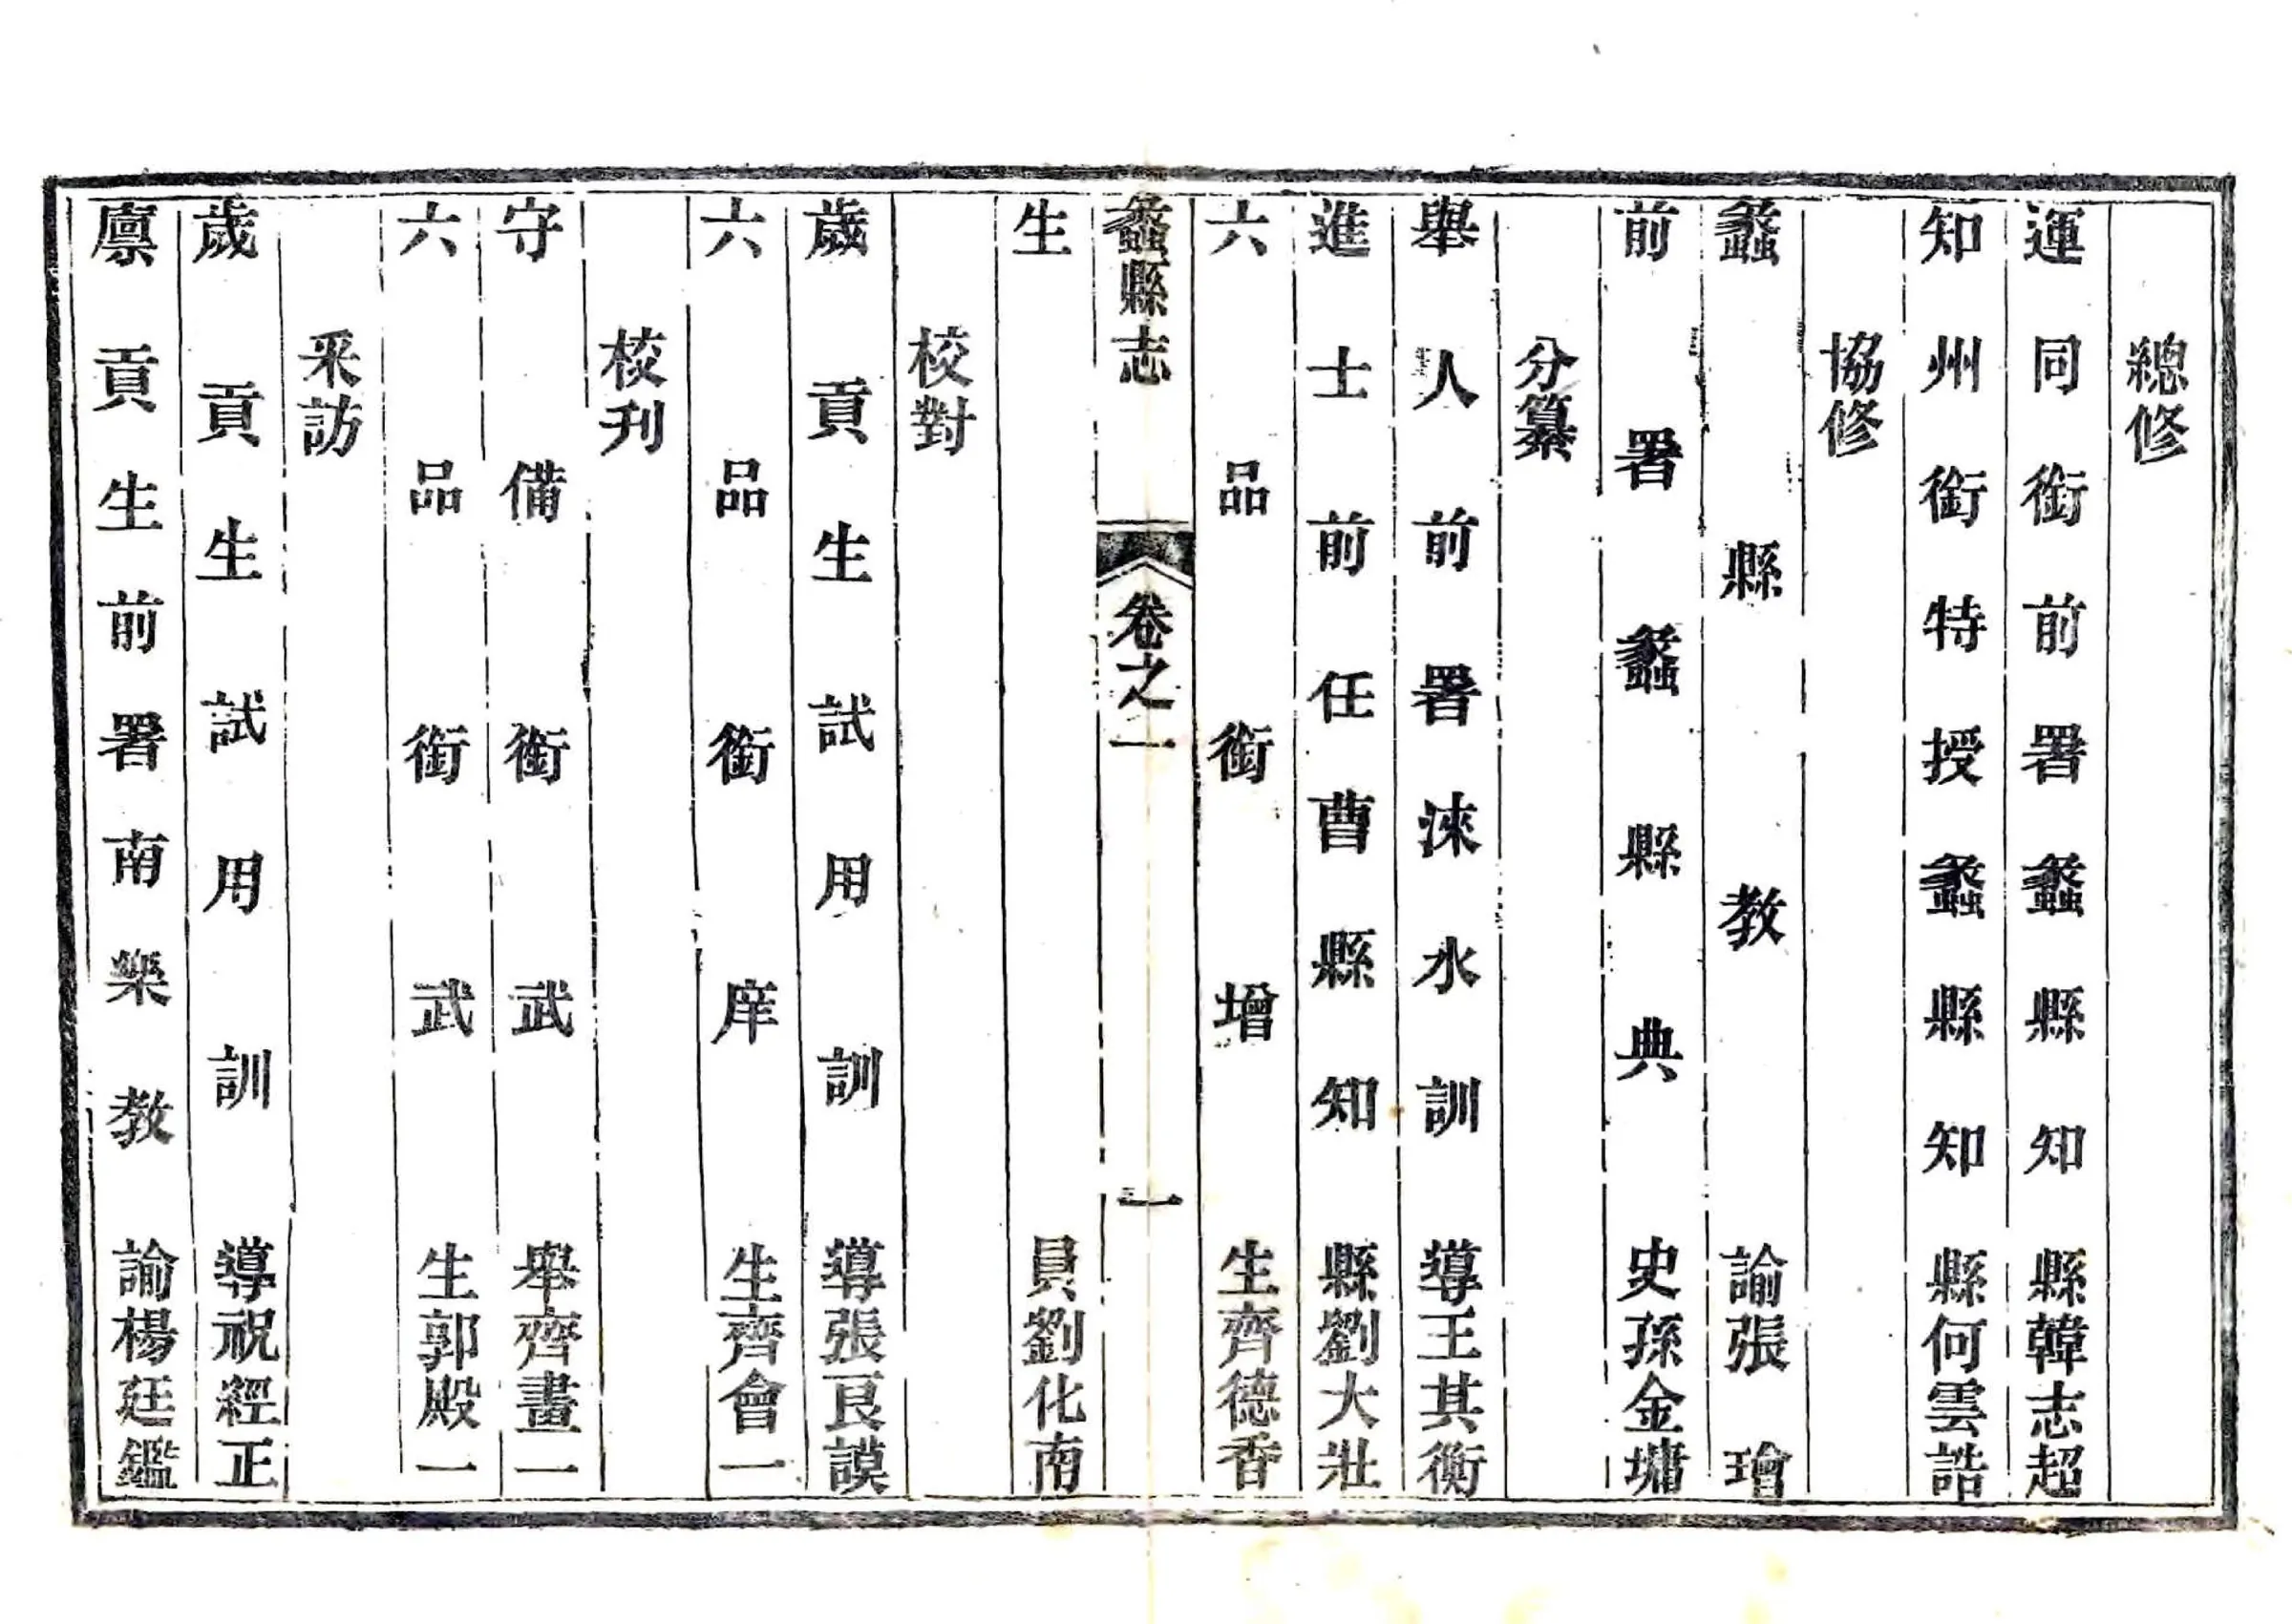 總修
運同銜前署蠡縣知縣韓志超
知州銜特授蠡縣知縣何雲誥
協修
蠡縣教諭張璿
前署蠡縣典史孫金墉
分纂
舉人前署淶水訓導王其衡
進士前任曹縣知縣劉大壯
六品銜增生齊德香
蠡縣志
卷之一
一
生員劉化南
校對
歲貢生試用訓導張良謨
六品銜庠生齊會一
校刋
守備銜武舉齊畫一
六品銜武生郭殿一
采訪
歲貢生試用訓導祝經正
廩貢生前署南樂教諭楊廷鑑